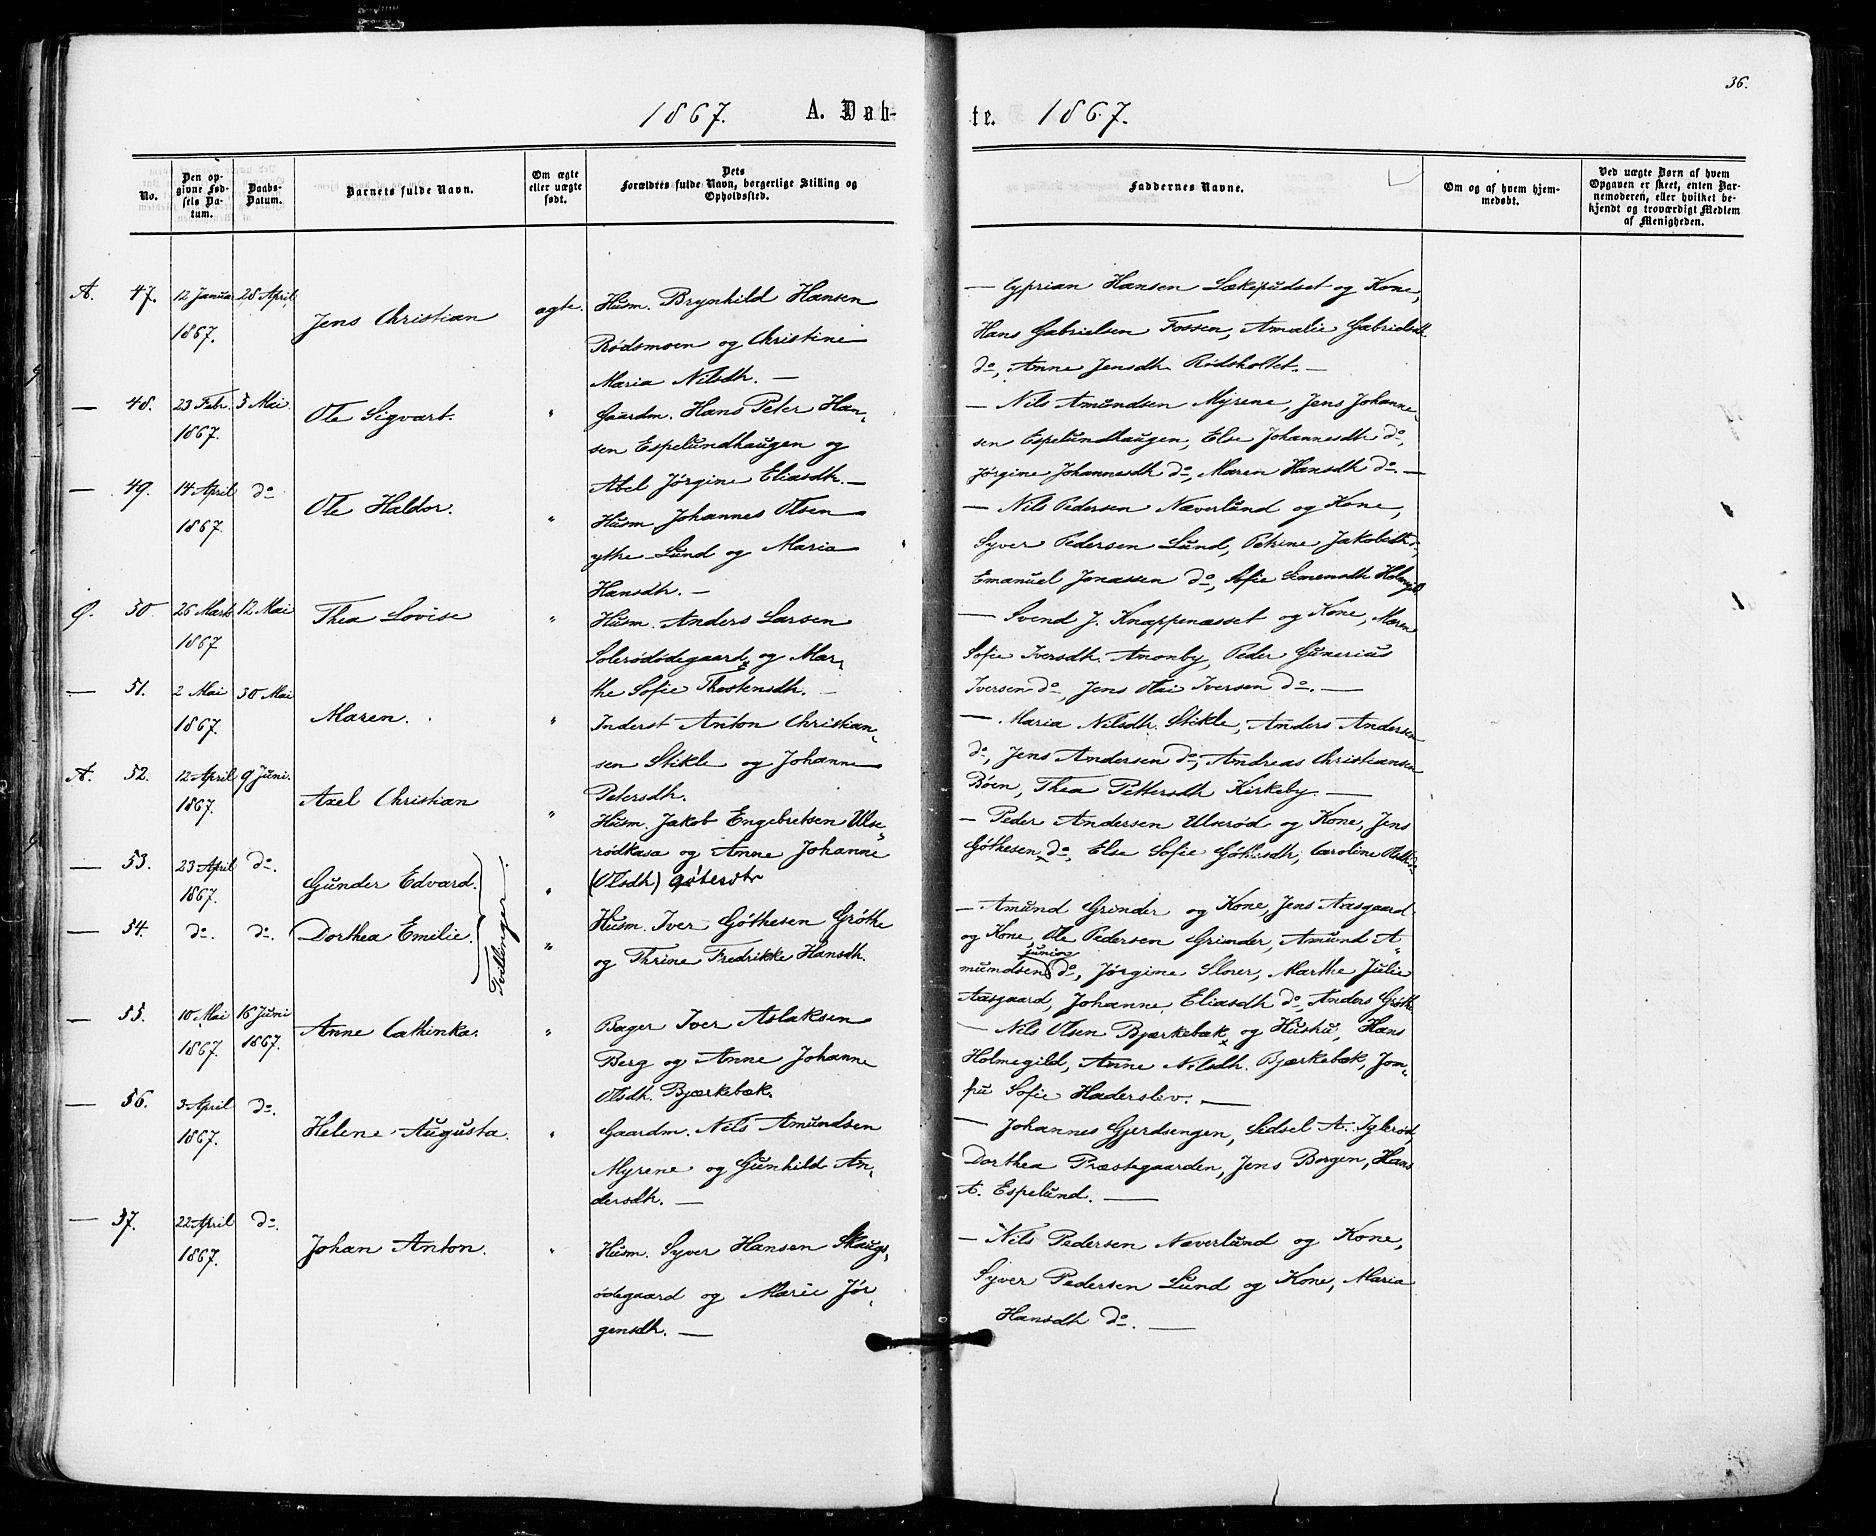 36.
1867. A. Døb-
te. 1867.
No.
Den op-
givne Fød-
sels Da-
tum.
Daabs-
Datum.
Barnets fulde Navn.
Om ægte
eller uægte
født.
Dets
Forældres fulde Navn, borgerlige Stilling og
Opholdssted.
Faddernes Navne.
Om og af hvem hjem-
medøbt.
Ved uægte Børn af hvem
Opgaven er skeet, enten Bar-
nemoderen, eller hvilket be-
kjendt og troværdigt Medlem
af Menigheden.
A. 47. 12 Januar 1867. 28 April Jens Christian ægte.
Husm. Brynhild Hansen
Rødsmoen og Christine
Maria Nilsdh. —
— Cyprian Hansen Sækepudset og Kone,
Hans Gabrielsen Fossen, Amalie Gabrielsdh
do, Anne Jensdh. Rødsholtet. —
— 48. 23 Febr. 1867. 5 Mai Ole Sigvart. "
Gaardm. Hans Peter Han-
sen Espelundhaugen og
Abel Jørgine Eliasdh. —
— Nils Amundsen Myrene, Jens Johanne-
sen Espelundhaugen, Else Johannesdh do,
Jørgine Johannesdh do, Maren Hansdh do. —
— 49. 14 April 1867. do Ole Haldor. "
Husm. Johannes Olsen
ythe Lund og Maria
Hansdh. —
— Nils Pedersen Næverlund og Kone,
Syver Pedersen Lund, Petrine Jakobsdh do,
Emanuel Jonassen do, Sofie Simensdh
Ø. 50 26 Marts 1867 12 Mai Thea Lovise "
Husm. Anders Larsen
Solerødødegaard og Mar-
the Sofie Thostensdh. —
— Svend J. Knappenæsset og Kone, Maren
Sofie Iversdh. Anonby, Peder Gunerius
Iversen do, Jens Olui Iversen do. —
— 51. 2 Mai 1867. 30 Mai Maren. "
Inderst Anton Christian-
sen Stikle og Johanne
Petersdh.
— Maria Nilsdh. Stikle, Anders Andersen
do, Jens Andersen do, Andreas Christiansen
Bøen, Thea Pettersdh Kirkeby. —
A. 52. 12 April 1867. 9 Juni. Axel Christian "
Husm. Jakob Engebretsen Ulse-
rødkasa og Anne Johanne
(Olsdh) Gøtesdtr
— Peder Andersen Ulserød og Kone, Jens
Gøthesen do, Else Sofie Gøthesdh, Caroline Olsdh do
— 53. 23 April 1867. do. Gunder Edvard. "
— 54. do. do. Dorthea Emilie. "
Tvillinger.
Husm. Iver Gøthesen Grøthe
og Thrine Fredrikke Hansdh.
— Amund Grinder og Kone, Jens Aasgaard
og Kone, Ole Pedersen Grinder, Amund A-
mundsen junior do, Jørgine Slorer, Marthe Julie
Aasgaard, Johanne Eliasdh do, Anders Grøthe
— 55. 10 Mai 1867. 16 Juni 1867. Anne Cathinka. "
Bager Iver Aslaksen
Berg og Anne Johanne
Olsdh. Bjærkebæk.
— Nils Olsen Bjærkebæk og Hustru, Hans
Holmegild, Anne Nilsdh. Bjærkebæk, Jom-
fru Sofie Haderslev. —
— 56. 3 April 1867. do. Helene Augusta. "
Gaardm. Nils Amundsen
Myrene og Gunhild An-
dersdh. —
— Johannes Gjerdsengen, Sidsel A. Iglerød,
Dorthea Præstegaarden, Jens Borgen, Hans
A. Espelund. —
— 57. 22 April 1867. do. Johan Anton. "
Husm. Syver Hansen Skaugs-
ødegaard og Marie Jør-
gensdh. —
— Nils Pedersen Næverlund og Kone,
Syver Pedersen Lund og Kone, Maria
Hansdh do. —